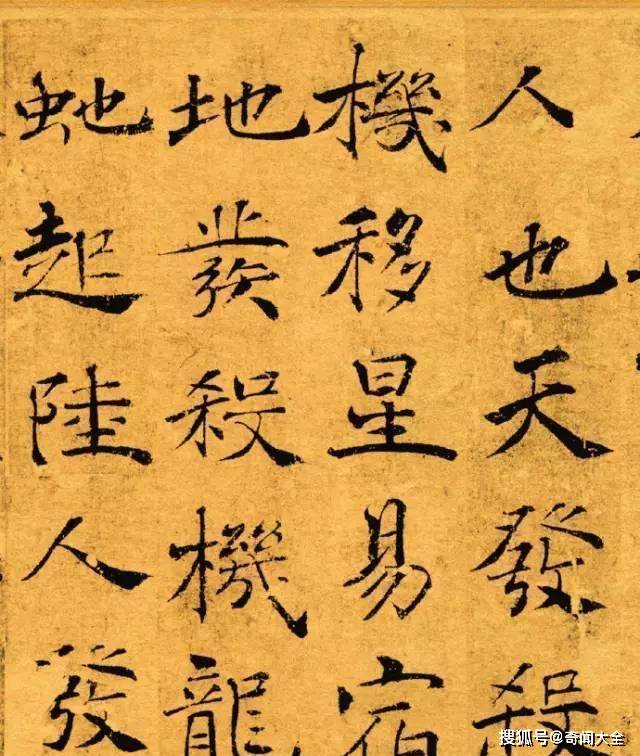 人也天發殺
機移星易宿
地發殺機龍
虵起陸人發
搜狐号@奇闻大全